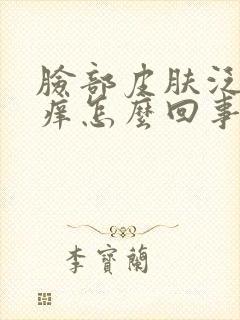 臉部皮肤泛
痒怎麼回事
李寶蘭